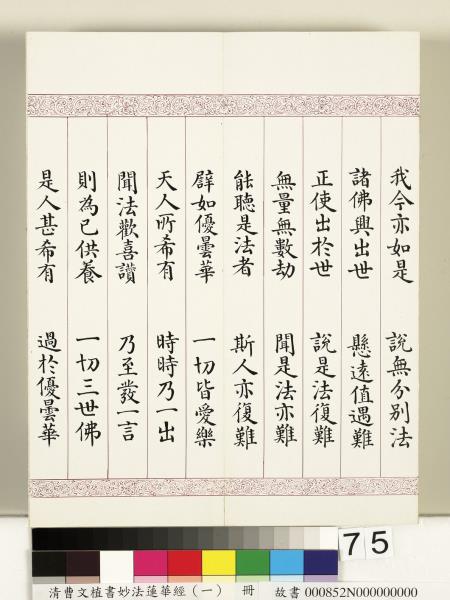 我今亦如是　說無分別法
諸佛興出世　懸遠值遇難
正使出於世　說是法復難
無量無數劫　聞是法亦難
能聽是法者　斯人亦復難
譬如優曇華　一切皆愛樂
天人所希有　時時乃一出
聞法歡喜讚　乃至發一言
則為已供養　一切三世佛
是人甚希有　過於優曇華
75
清曹文植書妙法蓮華經（一）　冊　故書 000852N000000000